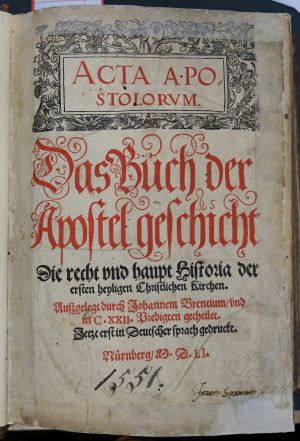 ACTA APO-
STOLORVM.
Das Buch der
Apostel geschicht
Die recht vnd haupt Historia der
ersten heyligen Christlichen Kirchen.
Außgelegt durch Johannem Brentium/vnd
in C. XXII. Predigten getheilet.
Jetzt erst in Deutscher sprach gedruckt.
Nürnberg/M. D. LI.
1551.